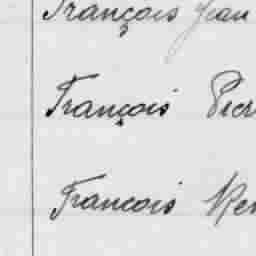 François Jean
François Pier
Francois Ren